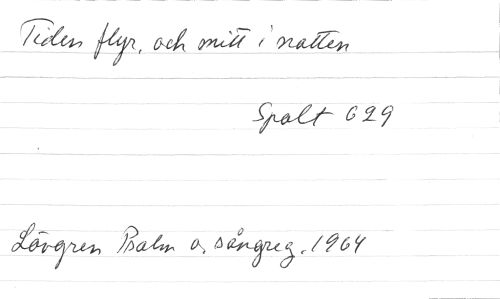 Tiden flyr, och mitt i natten
Spalt 629
Lövgren Psalm o. sångreg. 1964